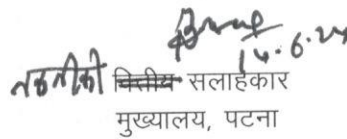 14.6.24
तकनीकी वित्तीय सलाहकार
मुख्यालय, पटना